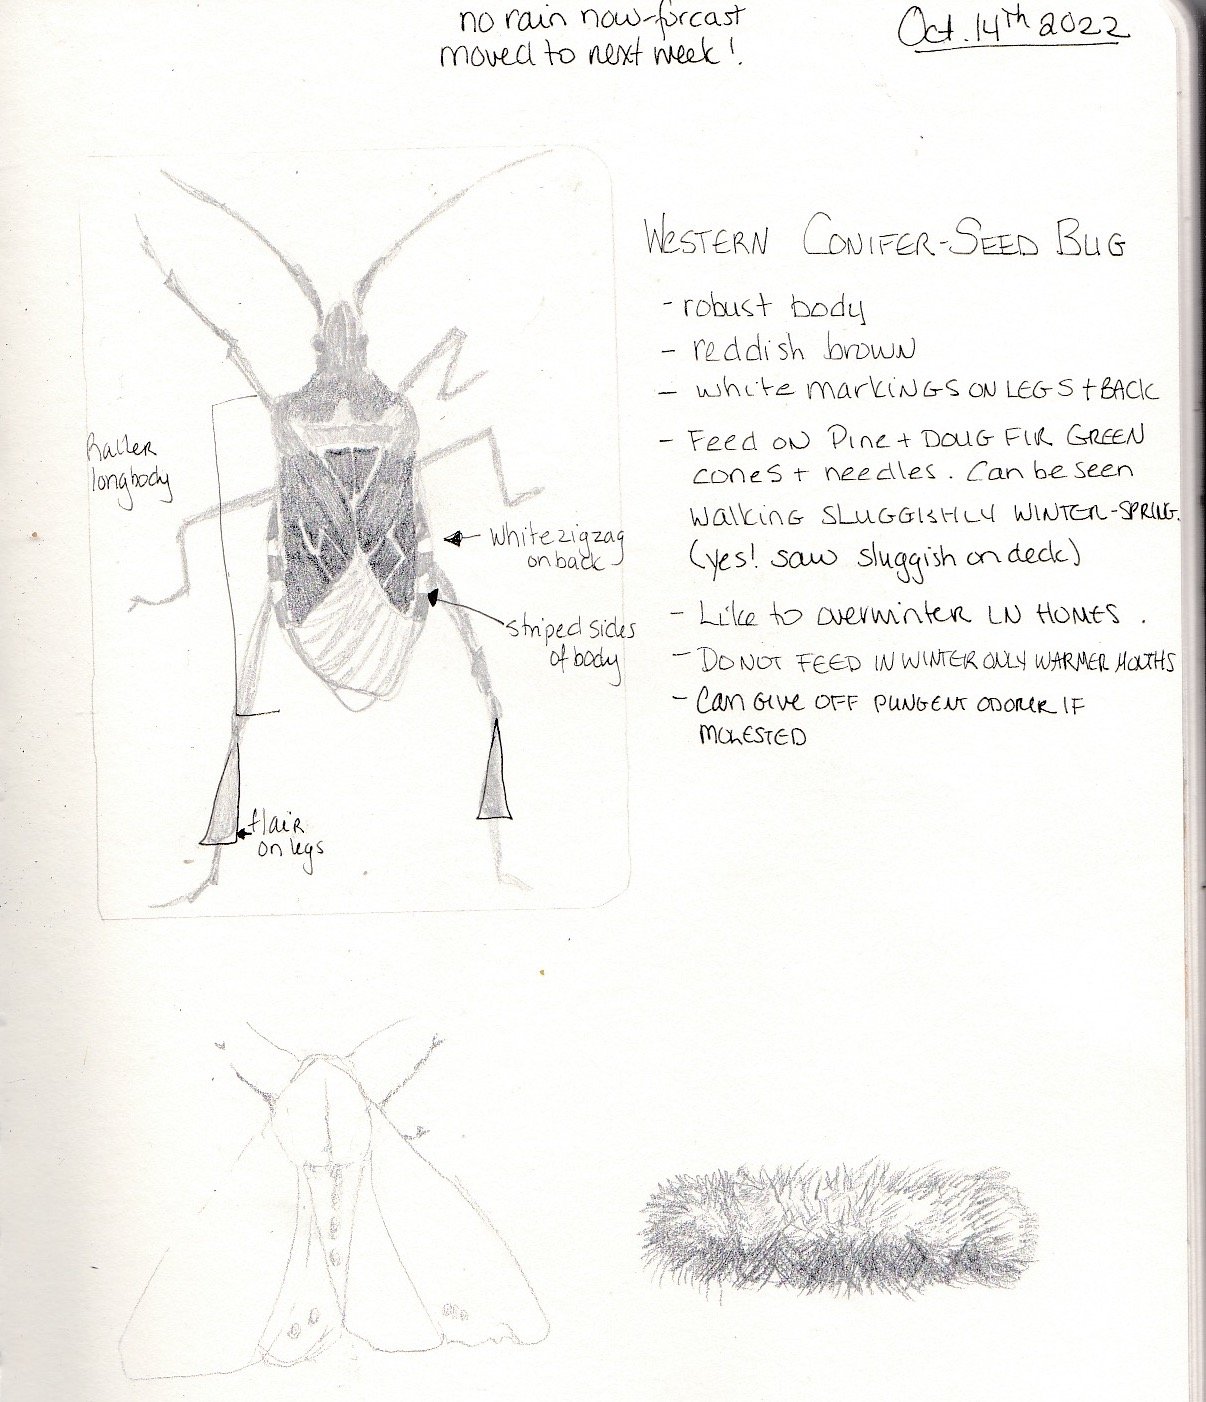 no rain now-forcast
moved to next week!
Oct. 14th 2022
WESTERN CONIFER-SEED BUG
- robust body
- reddish brown
- white markings on legs + back
- Feed on Pine + Doug Fir Green
cones + needles. Can be seen
walking sluggishly winter-spring.
(yes! saw sluggish on deck)
- Like to overwinter in homes.
- Do not feed in winter only warmer months
- Can give off pungent odorer if
molested
Rather
long body
white zigzag
on back
striped sides
of body
flair
on legs